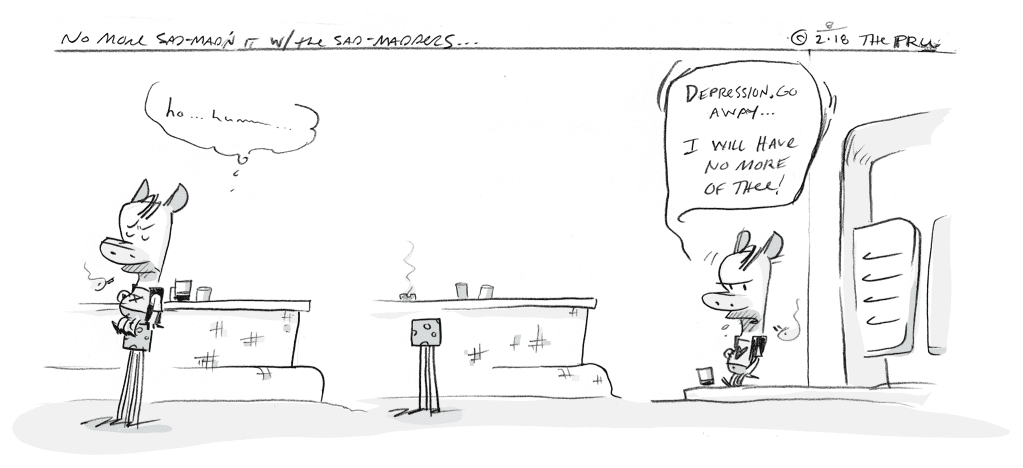 No More SAD-MAD'N IT W/ the SAD-MADDERS...
© 8 2.18 The PRU
ho... humm...
DEPRESSION, GO
AWAY...
I WILL HAVE
NO MORE
OF THEE!